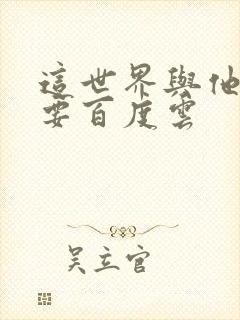 這世界與他
要百度雲
吴立官